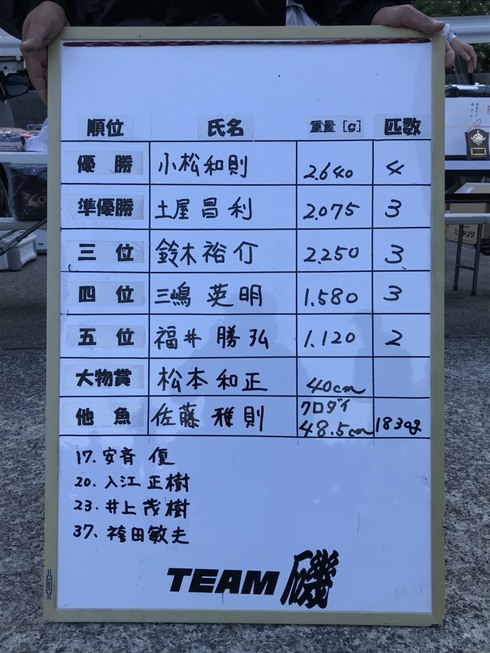 順位 氏名 重量[g] 匹数
優勝 小松和則 2.640 4
準優勝 土屋昌利 2.075 3
三位 鈴木裕介 2.250 3
四位 三嶋英明 1.580 3
五位 福井勝弘 1.120 2
大物賞 松本和正 40cm
他魚 佐藤雅則 クロダイ 48.5cm 1830g
17. 安斉優
20. 入江正樹
23. 井上茂樹
37. 袴田敏夫
TEAM磯